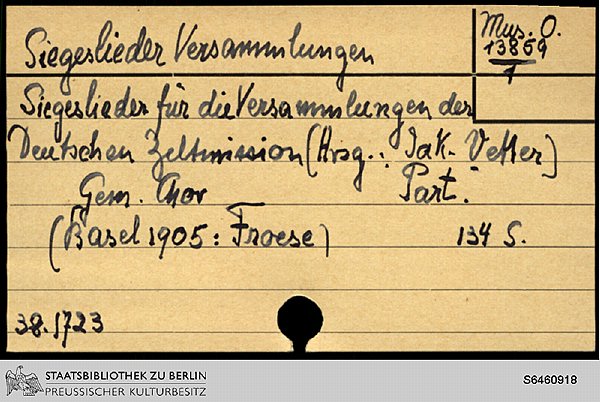 Siegeslieder Versammlungen
Mus. O.
13869
1
Siegeslieder für die Versammlungen der
Deutschen Zeltmission (Hrsg.: Jak. Vetter)
Gem. Chor Part.
(Basel 1905: Froese) 134 S.
38.1723
STAATSBIBLIOTHEK ZU BERLIN
PREUSSISCHER KULTURBESITZ
S6460918